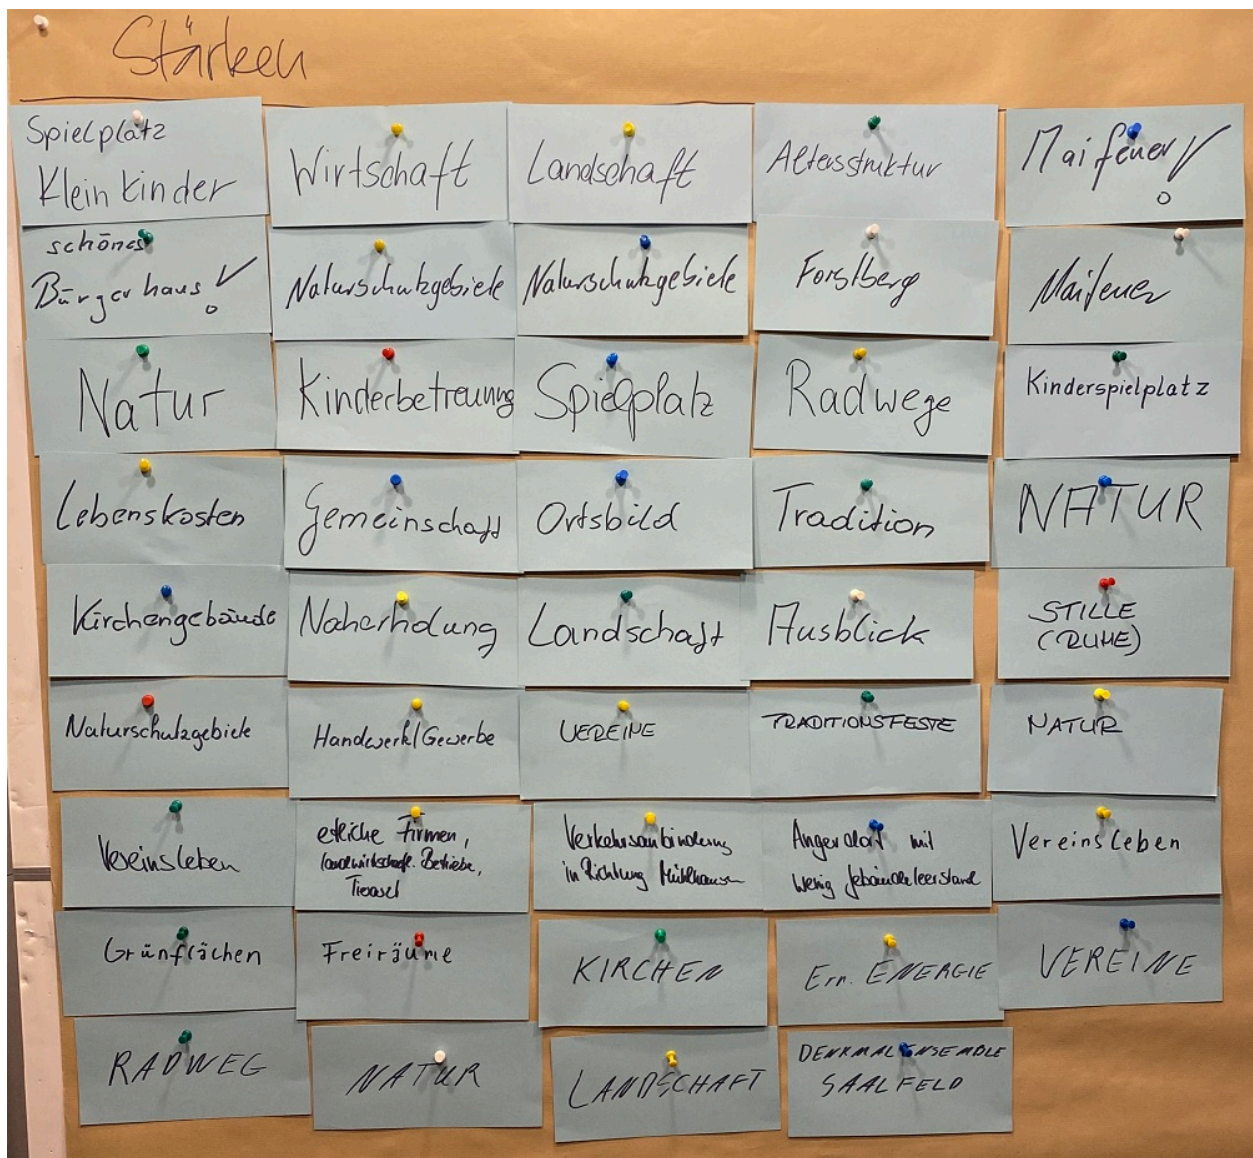 Stärken
Spielplatz
Kleinkinder
Wirtschaft
Landschaft
Altersstruktur
Maifeuer!
schönes
Bürgerhaus!
Naturschutzgebiete
Naturschutzgebiete
Forstberg
Maifeuer
Natur
Kinderbetreuung
Spielplatz
Radwege
Kinderspielplatz
Lebenskosten
Gemeinschaft
Ortsbild
Tradition
NATUR
Kirchengebäude
Naherholung
Landschaft
Ausblick
STILLE
(RUHE)
Naturschutzgebiete
Handwerk/Gewerbe
VEREINE
TRADITIONSFESTE
NATUR
Vereinsleben
etliche Firmen,
landwirtschaftl. Betriebe,
Verkehrsanbindung
in Richtung Mühlhausen
Angerdorf mit
wenig Gebäudeleerstand
Vereinsleben
Grünflächen
Freiräume
KIRCHEN
Ern. ENERGIE
VEREINE
RADWEG
NATUR
LANDSCHAFT
DENKMALENSEMBLE
SAALFELD